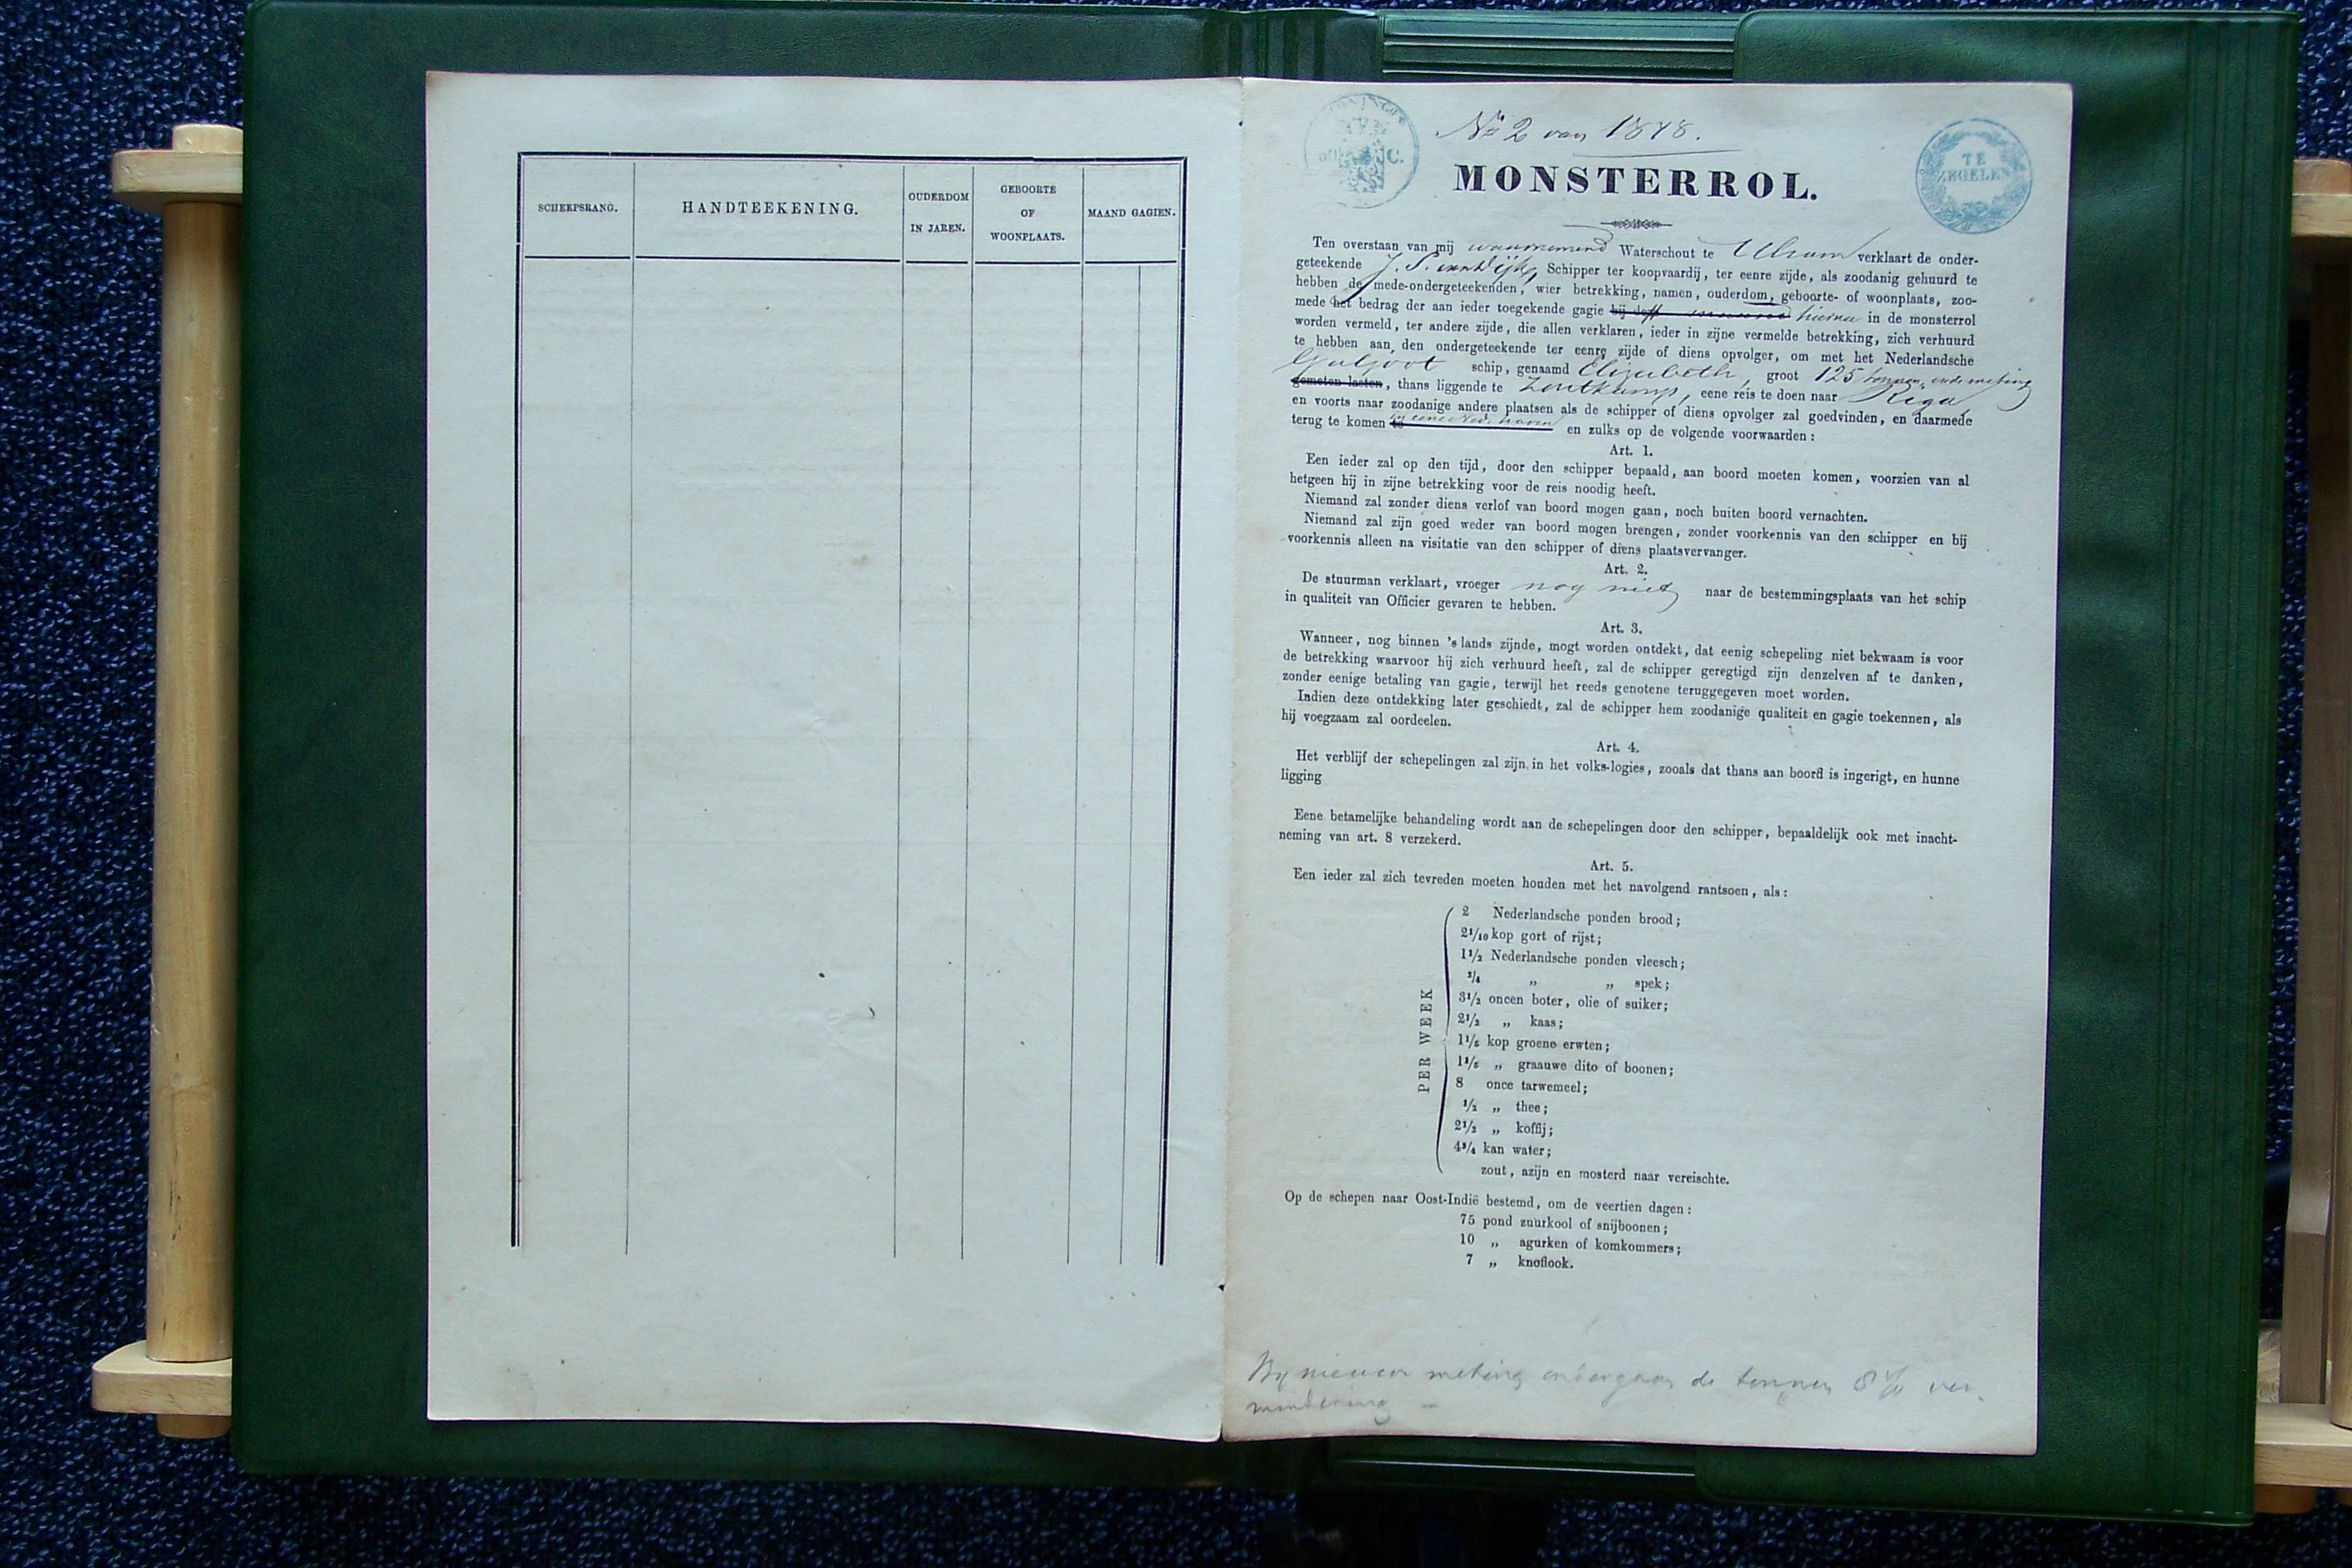 SCHEEPSRANG.
HANDTEEKENING.
OUDERDOM
IN JAREN.
GEBOORTE
OF
WOONPLAATS.
MAAND GAGIEN.
No 2 van 1878.
TE
ZEGELEN
MONSTERROL.
Ten overstaan van mij waarnemend Waterschout te Ulrum verklaart de onder-
geteekende J. S. van Dijk, Schipper ter koopvaardij, ter eenre zijde, als zoodanig gehuurd te
hebben de mede-ondergeteekenden, wier betrekking, namen, ouderdom, geboorte- of woonplaats, zoo-
mede het bedrag der aan ieder toegekende gagie hierna in de monsterrol
worden vermeld, ter andere zijde, die allen verklaren, ieder in zijne vermelde betrekking, zich verhuurd
te hebben aan den ondergeteekende ter eenre zijde of diens opvolger, om met het Nederlandsche
Galjoot schip, genaamd Elizabeth, groot 125 tonnen, oude meting
gemeten lasten, thans liggende te Zoutkamp, eene reis te doen naar Riga
en voorts naar zoodanige andere plaatsen als de schipper of diens opvolger zal goedvinden, en daarmede
terug te komen te in eene Ned. haven en zulks op de volgende voorwaarden:
Art. 1.
Een ieder zal op den tijd, door den schipper bepaald, aan boord moeten komen, voorzien van al
hetgeen hij in zijne betrekking voor de reis noodig heeft.
Niemand zal zonder diens verlof van boord mogen gaan, noch buiten boord vernachten.
Niemand zal zijn goed weder van boord mogen brengen, zonder voorkennis van den schipper en bij
voorkennis alleen na visitatie van den schipper of diens plaatsvervanger.
Art. 2.
De stuurman verklaart, vroeger nog niet naar de bestemmingsplaats van het schip
in qualiteit van Officier gevaren te hebben.
Art. 3.
Wanneer, nog binnen 's lands zijnde, mogt worden ontdekt, dat eenig schepeling niet bekwaam is voor
de betrekking waarvoor hij zich verhuurd heeft, zal de schipper geregtigd zijn denzelven af te danken,
zonder eenige betaling van gagie, terwijl het reeds genotene teruggegeven moet worden.
Indien deze ontdekking later geschiedt, zal de schipper hem zoodanige qualiteit en gagie toekennen, als
hij voegzaam zal oordeelen.
Art. 4.
Het verblijf der schepelingen zal zijn in het volks-logies, zooals dat thans aan boord is ingerigt, en hunne
ligging
Eene betamelijke behandeling wordt aan de schepelingen door den schipper, bepaaldelijk ook met inacht-
neming van art. 8 verzekerd.
Art. 5.
Een ieder zal zich tevreden moeten houden met het navolgend rantsoen, als:
PER WEEK
2 Nederlandsche ponden brood;
2 1/10 kop gort of rijst;
1 1/2 Nederlandsche ponden vleesch;
3/4 „ „ spek;
3 1/2 oncen boter, olie of suiker;
2 1/2 „ kaas;
1 1/5 kop groene erwten;
1 1/5 „ graauwe dito of boonen;
8 once tarwemeel;
1/2 „ thee;
2 1/2 „ koffij;
4 3/4 kan water;
zout, azijn en mosterd naar vereischte.
Op de schepen naar Oost-Indië bestemd, om de veertien dagen:
75 pond zuurkool of snijboonen;
10 „ agurken of komkommers;
7 „ knoflook.
By nieuwe meting ondergaan de tonnen 8 % ver-
mindering